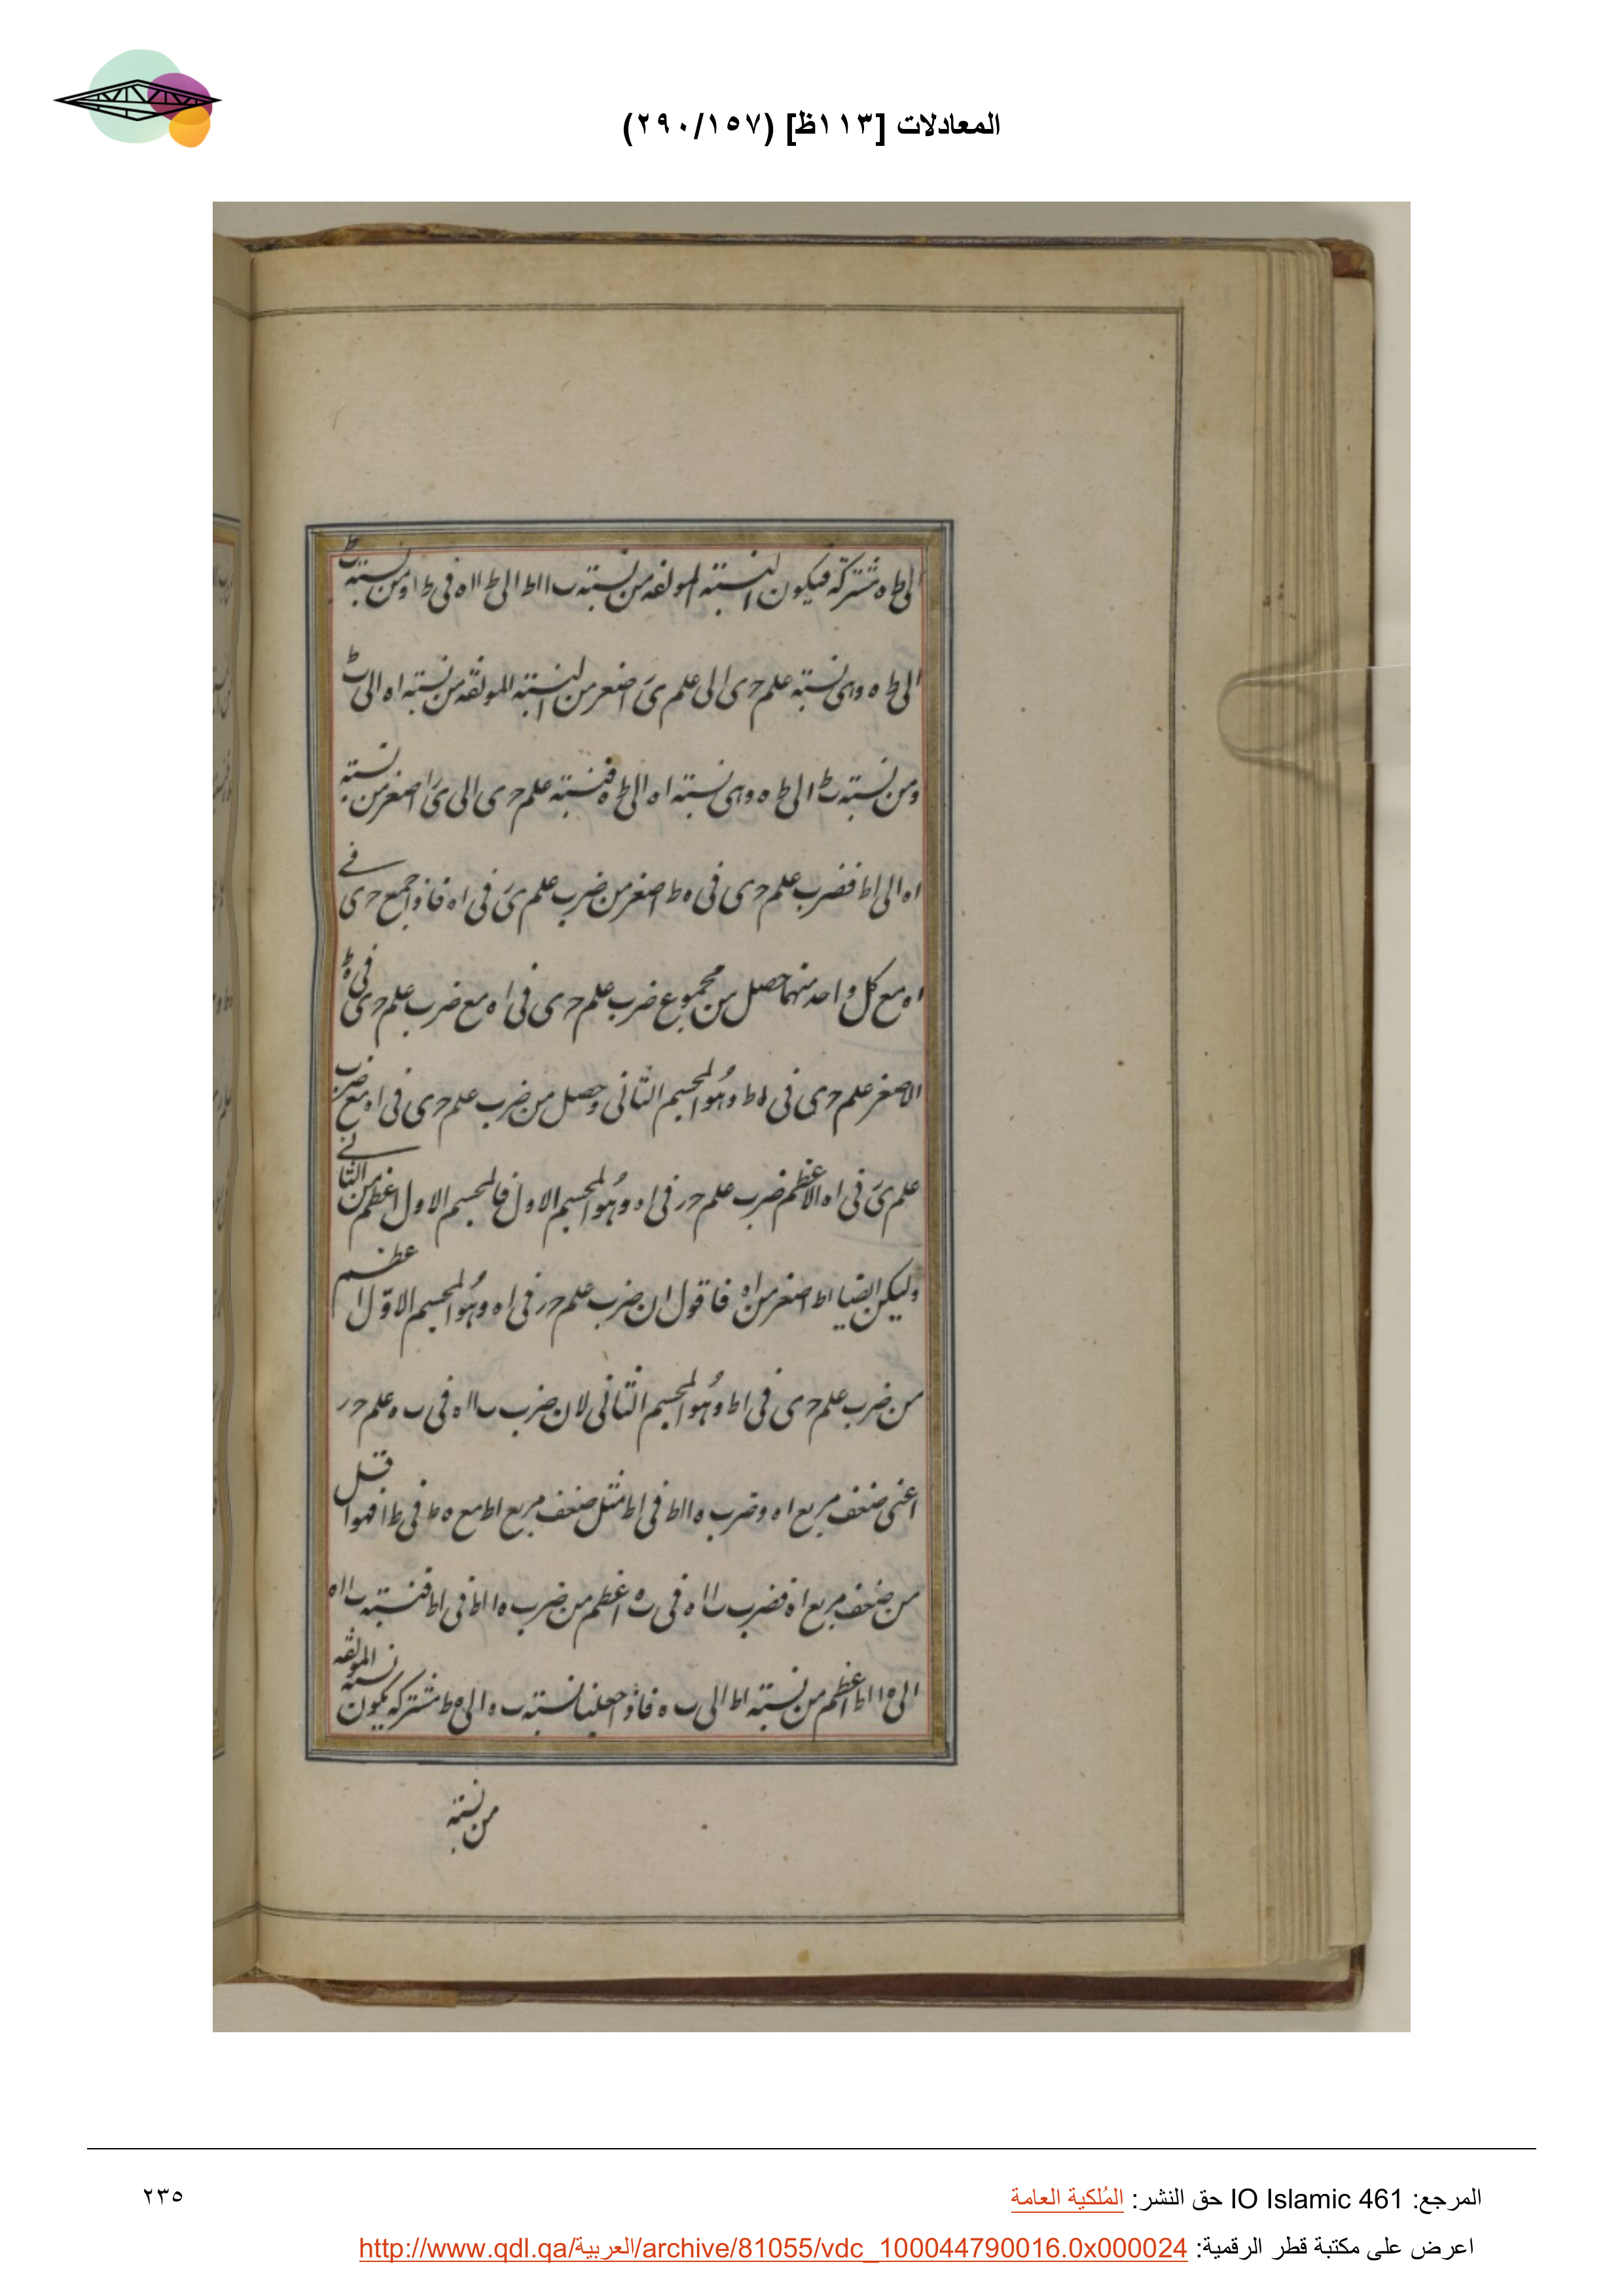 المعادلات [١١٣ظ] (٢٩٠/١٥٧)
الى ط ه مشتركة فيكون النسبة المولفه من نسبته ب ا اط الى ط ا ا ه فى ط ا و من نسبته ط
الى ط ه وهى نسبته علم حرى الى علم ىَ اصغر من النسبته المولفه من نسبته اه الى ط
ومن نسبته ط ا الى ط ه وهى نسبته اه الى ط ه فنسبته علم حرى الى ىَ اصغر من نسبته
اه الى اط فضرب علم حرى فى ه ط اصغر من ضرب علم ىَ فى اه فاذا جمع حرى فى
اه مع كل واحد منهما حصل من مجموع ضرب علم حرى فى اه مع ضرب علم حرى فى ه ط
الاصغر علم حرى فى اط وهُو المجسم الثانى وحصل من ضرب علم حرى فى اه مع ضرب
علم ىَ فى اه الاعظم ضرب علم حر فى اه وهُو المجسم الاول فالمجسم الاول اعظم من الثانى
وليكن ايضا اط اصغر من اه فاقول ان ضرب علم حر فى اه وهُو المجسم الاوّل اعظم
من ضرب علم حرى فى اط وهُو المجسم الثانى لان ضرب ب ا اه فى ب ه علم حر
اعنى ضعف مربع اه وضرب ه ا اط فى اط مثل ضعف مربع اط مع ه ط فى ط ا فهو اقل
من ضعف مربع اه فضرب ب ا اه فى ب ه اعظم من ضرب ه ا اط فى اط فنسبته ب ا اه
الى ه ا اط اعظم من نسبته اط الى ب ه فاذا جعلنا نسبته ب ه الى ه ط مشتركه يكون نسبته المولفه
من نسبته
المرجع: IO Islamic 461 حق النشر: المُلكية العامة
٢٣٥
اعرض على مكتبة قطر الرقمية: http://www.qdl.qa/العربية/archive/81055/vdc_100044790016.0x000024